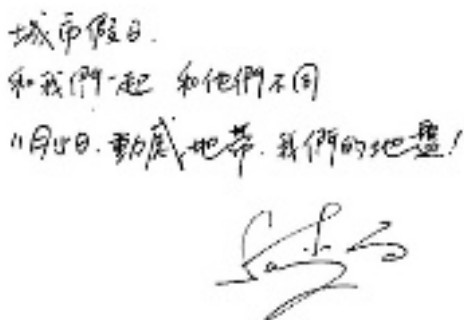 城市假日.
和我們一起 和他們不同
11月15日.動感地帶.我們的地盤!